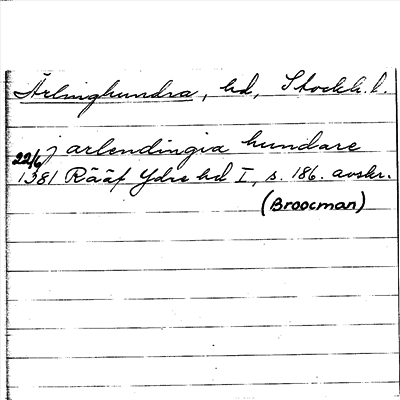 Ärlinghundra, hd, Stockh. l.
j arlendingia hundare
22/6 1381 Rääf Ydre hd I, s. 186. avskr.
(Broocman)